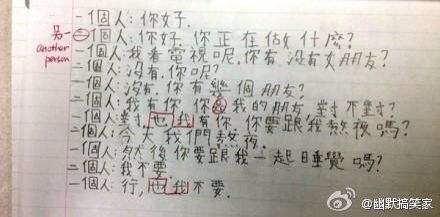 一個人：你好.
另一
another person
二個人：你好，你正在做什麼？
一個人：我看電視呢，你有沒有女朋友？
二個人：沒有，你呢？
一個人：沒有，你有幾個朋友？
二個人：我有你，你是我的朋友，對不對？
一個人：對，也我有你，你要跟我熬夜嗎？
二個人：今天我們熬夜.
一個人：然後你要跟我一起睡覺嗎？
二個人：我不要.
一個人：行，也我不要.
@幽默搞笑家